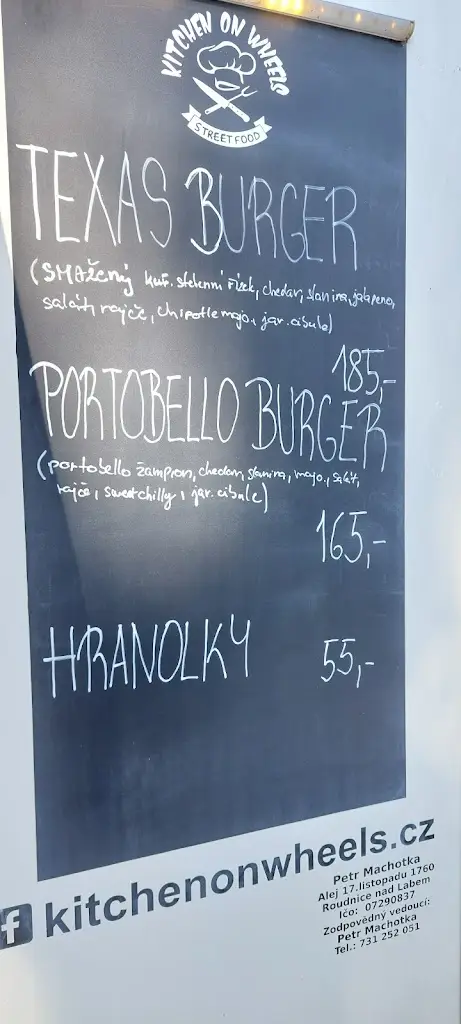 KITCHEN ON WHEELS
STREET FOOD
TEXAS BURGER
(SMAŽENÝ kuř. stehenní řízek, chedar, slanina, jalapeno,
salát, rajče, chipotle majo, jar. cibule)
185,-
PORTOBELLO BURGER
(portobello žampion, chedar, slanina, majo., salát,
rajče, sweet chilly, jar. cibule)
165,-
HRANOLKY 55,-
f kitchenonwheels.cz
Petr Machotka
Alej 17.listopadu 1760
Roudnice nad Labem
Ičo: 07290837
Zodpovědný vedoucí:
Petr Machotka
Tel.: 731 252 051